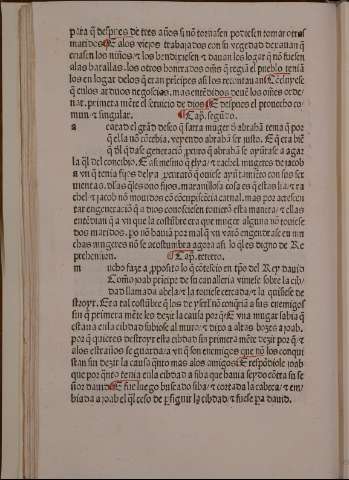 para q̃ despues de tres años si nõ tornasen podiesen tomar otros
maridos. E alos viejos trabajados con su vegedad dexauan q̃
criasen los niños/ τ los bendixiesen/ τ dauan les logar q̃ nõ fuesen
alas batallas. los otros honrrados oms̃ q̃ regiã el pueblo tenia
los en logar delos q̃ eran prĩcipes
q̃ en los arduos negocios, mas entẽdidos
nar primera mẽte el seruicio de dios. E despues el prouecho co
mun τ singular. Cap. segũdo.
a
carad el grãd deseo q̃ sarra muger d' abrahã tenia q̃ por
q̃ ella nõ cõcebia, veyendo abrahã ser justo. E q̃ era biẽ
q̃ d'l q̃dase generaciõ
la q̃ el concibio. E asi mesmo τ rachel mugeres de jacob
a vn q̃ tenia fijos
uientas. cosa es q̃ estas
chel τ jacob nõ mouidos cõ cõcupiscẽcia carnal. mas por acrescen
tar engeneraciõ q̃ a dios conosciesen touierõ esta manera/ τ ellas
entẽdian q̃ a vn que la costũbre era que muger alguno nõ touiese
dos maridos. po nõ hauia por mal q̃ vn varõ engendrase en mu
chas mugeres nõ se acostumbra agora asi. lo q̃l es digno de Re
prehension. Cap. tercero.
m
ucho faze a proposito lo q̃ cõtescio en tpõ del Rey dauid
Como joab prĩcipe de su caualleria viniese sobre la cib
dad llamada abela/ τ la touiese cercada/ τ la quisiese de
stroyr. Era tal costũbre q̃ los de ysrl' nõ conq̃rian a sus enemigos
sin q̃ primera mẽte les dezir la causa por q̃. E vna muger sabia q̃
estaua en la cibdad subiose al muro/ τ dixo a altas bozes a joab.
por q̃ quieres destroyr esta cibdad sin primera mẽte dezir por q̃/ τ
alos estraños se guardaua/ a vn q̃ son enemigos que nõ los conqui
stan sin dezir la causa q̃nto mas alos amigos. E respõdiole joab
que por q̃nto tenia en la cibdad a siba que hauia seydo cõtra su se
ñor dauid. E fue luego buscado siba/ τ cortada la cabeça/ τ em/
biada a joab el q̃l ceso de psiguir la cibdad/ τ fuese para dauid.